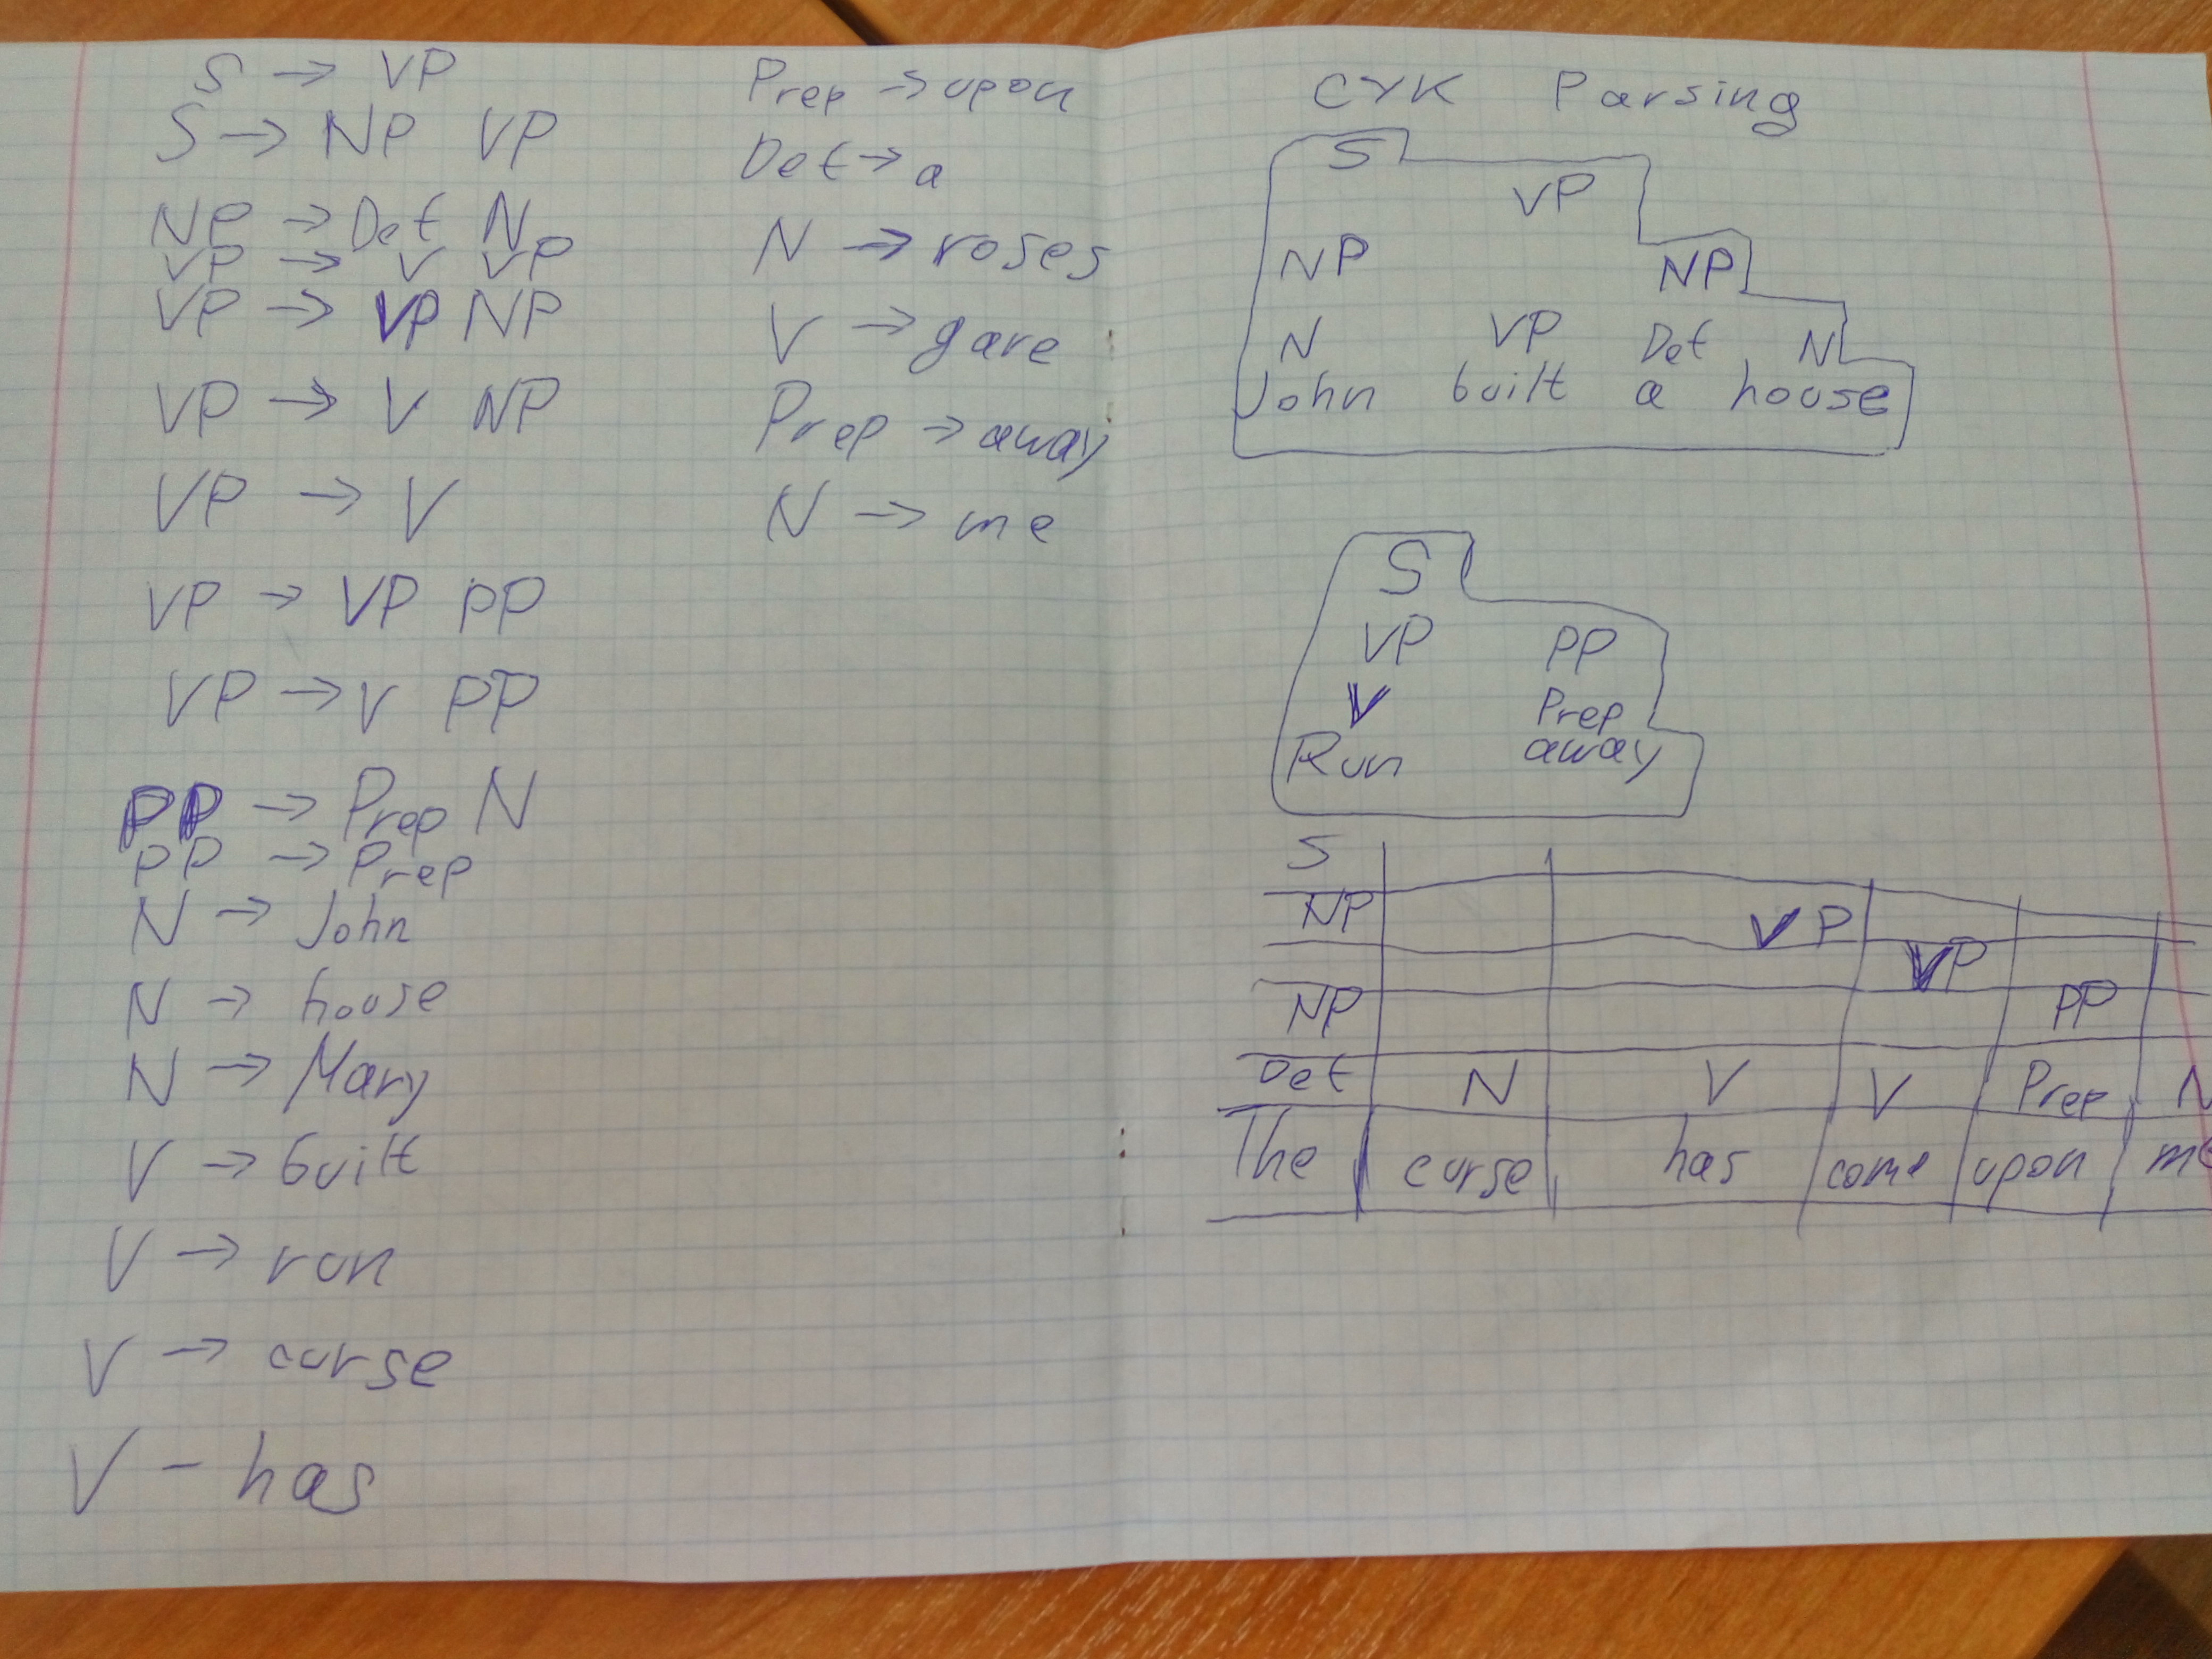 S → VP
S → NP VP
NP → Det N
VP → V VP
VP → VP NP
VP → V NP
VP → V
VP → VP PP
VP → V PP
PP → Prep N
PP → Prep
N → John
N → house
N → Mary
V → built
V → run
V → curse
V - has
Prep → upon
Det → a
N → roses
V → gave
Prep → away
N → me
CYK Parsing
S
VP
NP NP
N VP Det N
John built a house
S
VP PP
V Prep
Run away
S
NP VP
VP
NP PP
Det N V V Prep N
The curse has come upon me